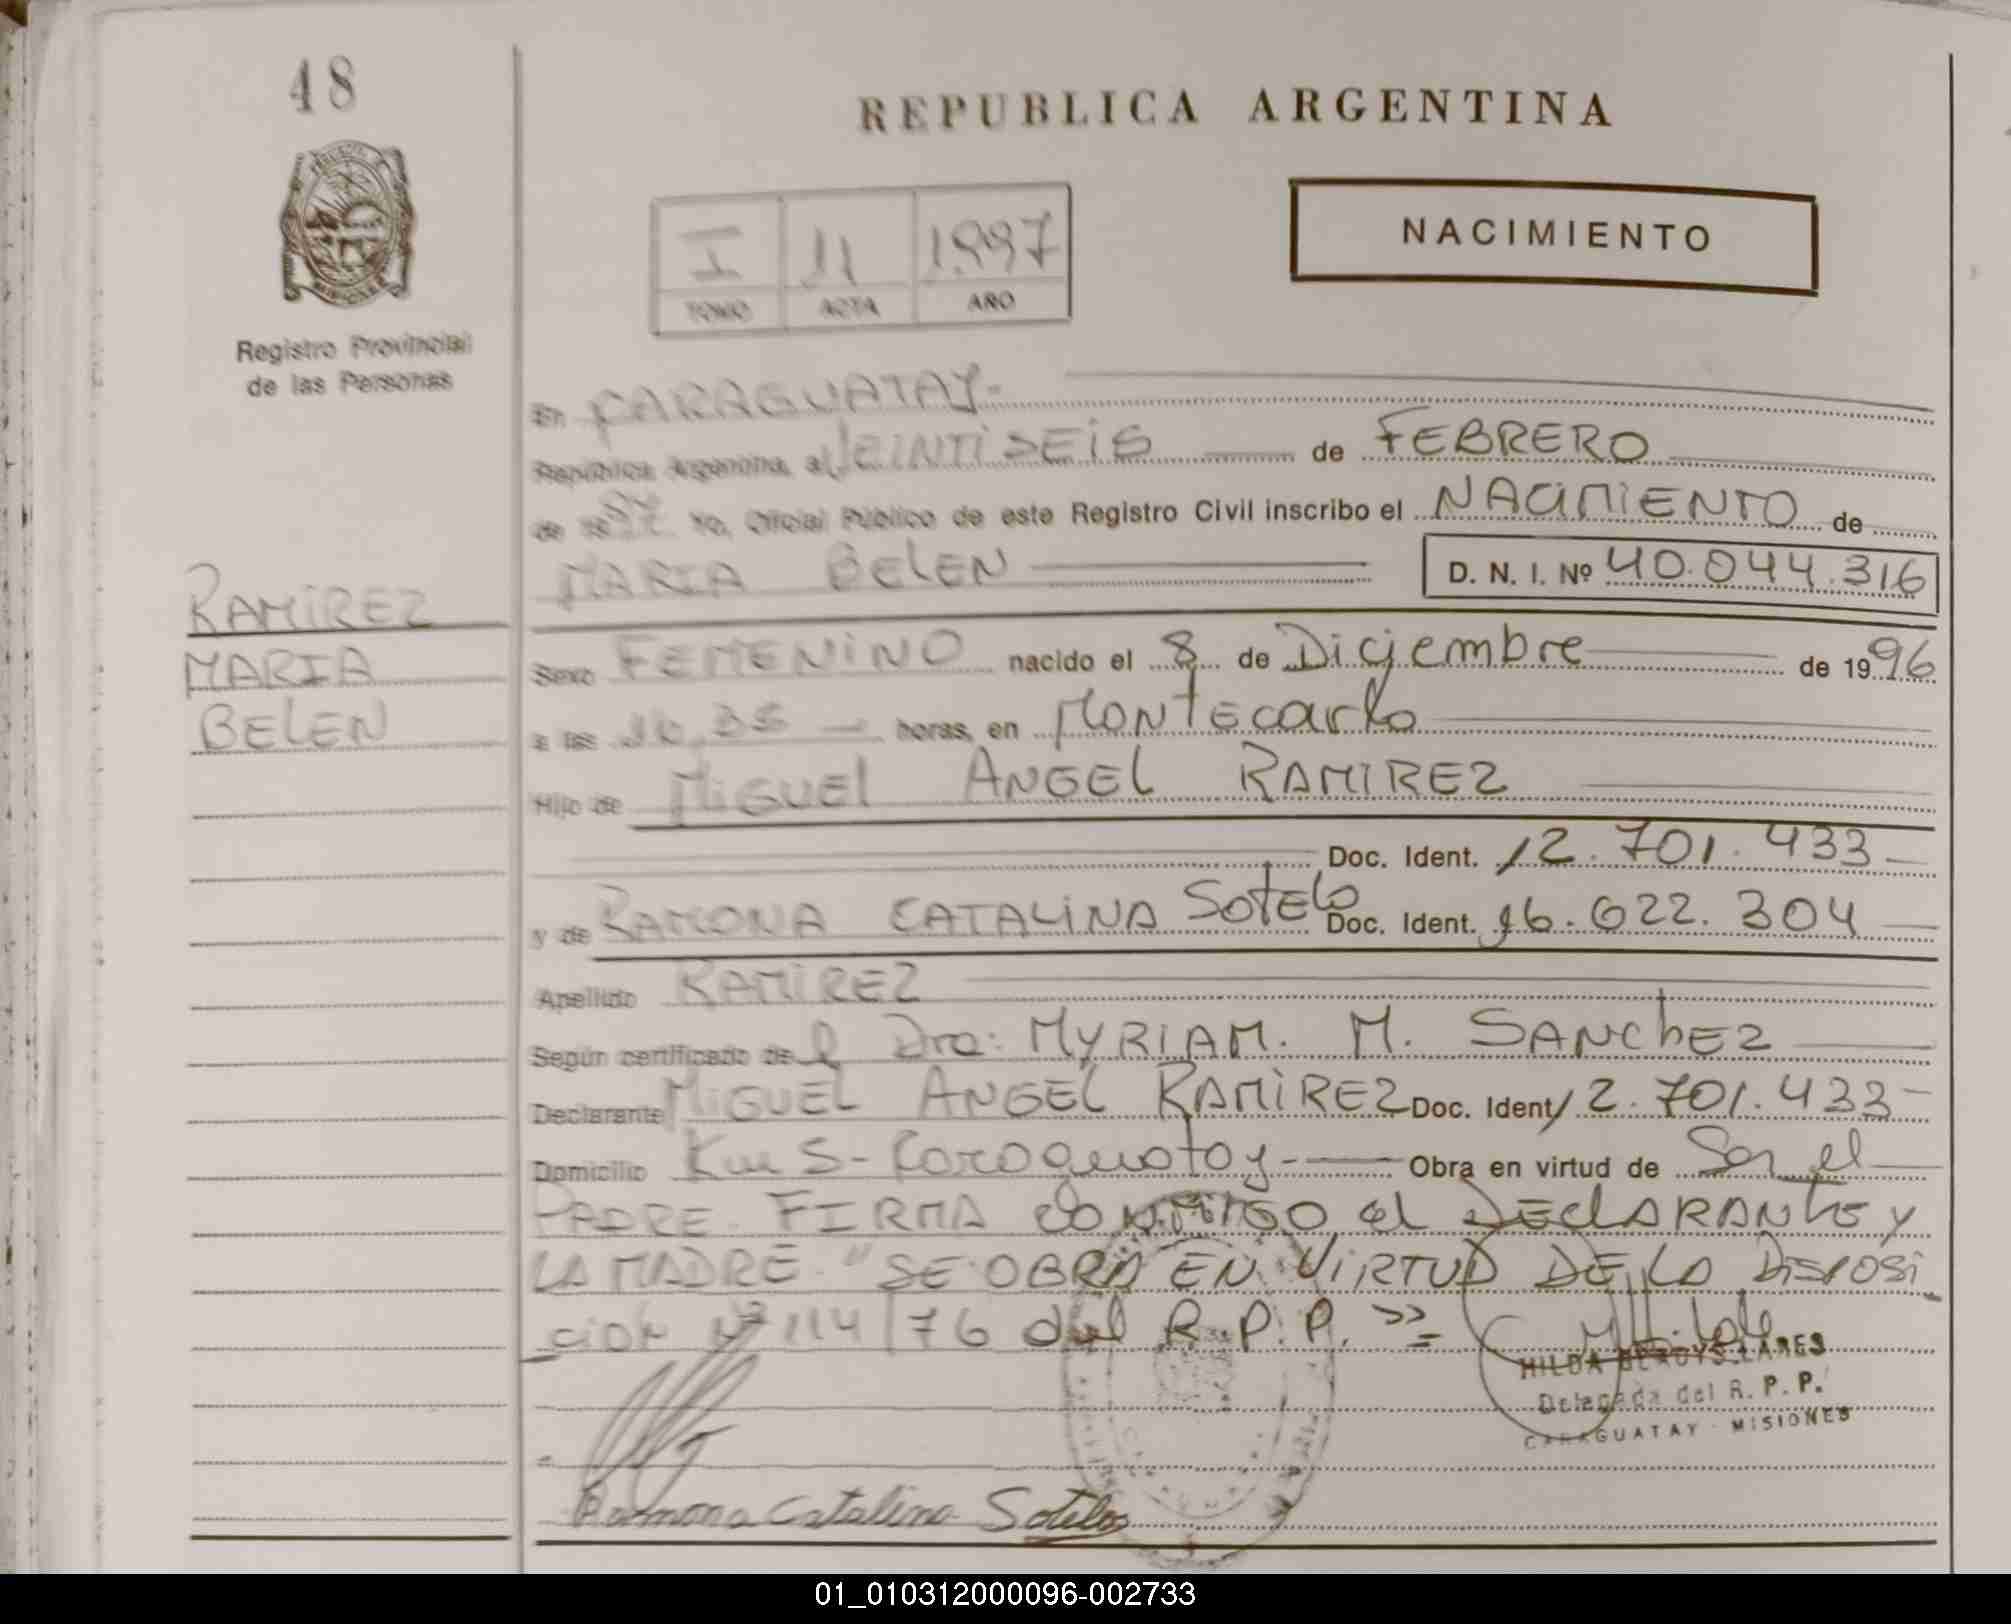 48
REPUBLICA ARGENTINA
I 11 1.997
TOMO ACTA AÑO
NACIMIENTO
Registro Provincial
de las Personas
En CARAGUATAY-
República Argentina, a VEINTISEIS de FEBRERO
de 19 97 Yo, Oficial Público de este Registro Civil inscribo el NACIMIENTO de
MARIA BELEN D. N. I. Nº 40.044.316
RAMIREZ
MARIA
BELEN
Sexo FEMENINO nacido el 8 de Diciembre de 1996
a las horas, en Montecarlo
Hijo de MIGUEL ANGEL RAMIREZ
Doc. Ident. 12.701.433
y de RAMONA CATALINA SOTELO Doc. Ident. 16.622.304
Apellido RAMIREZ
Según certificado de Dra: MYRIAM. M. SANCHEZ
Declarante MIGUEL ANGEL RAMIREZ Doc. Ident 12.701.433
Domicilio Km 5- Caraguatay- Obra en virtud de Ser el
PADRE. FIRMA CONMIGO el DEClARANTE y
LA MADRE. "SE OBRA EN VIRTUD DE LA DISPOSI
CION Nº 114/76 del R.P.P.»=
HILDA GLADYS LARES
Delegada del R. P. P.
CARAGUATAY - MISIONES
Ramona Catalina Sotelo
01_010312000096-002733